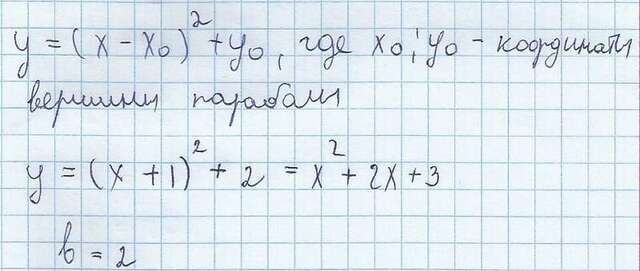 y = (x - x₀)² + y₀, где x₀; y₀ - координаты
вершины параболы
y = (x + 1)² + 2 = x² + 2x + 3
b = 2